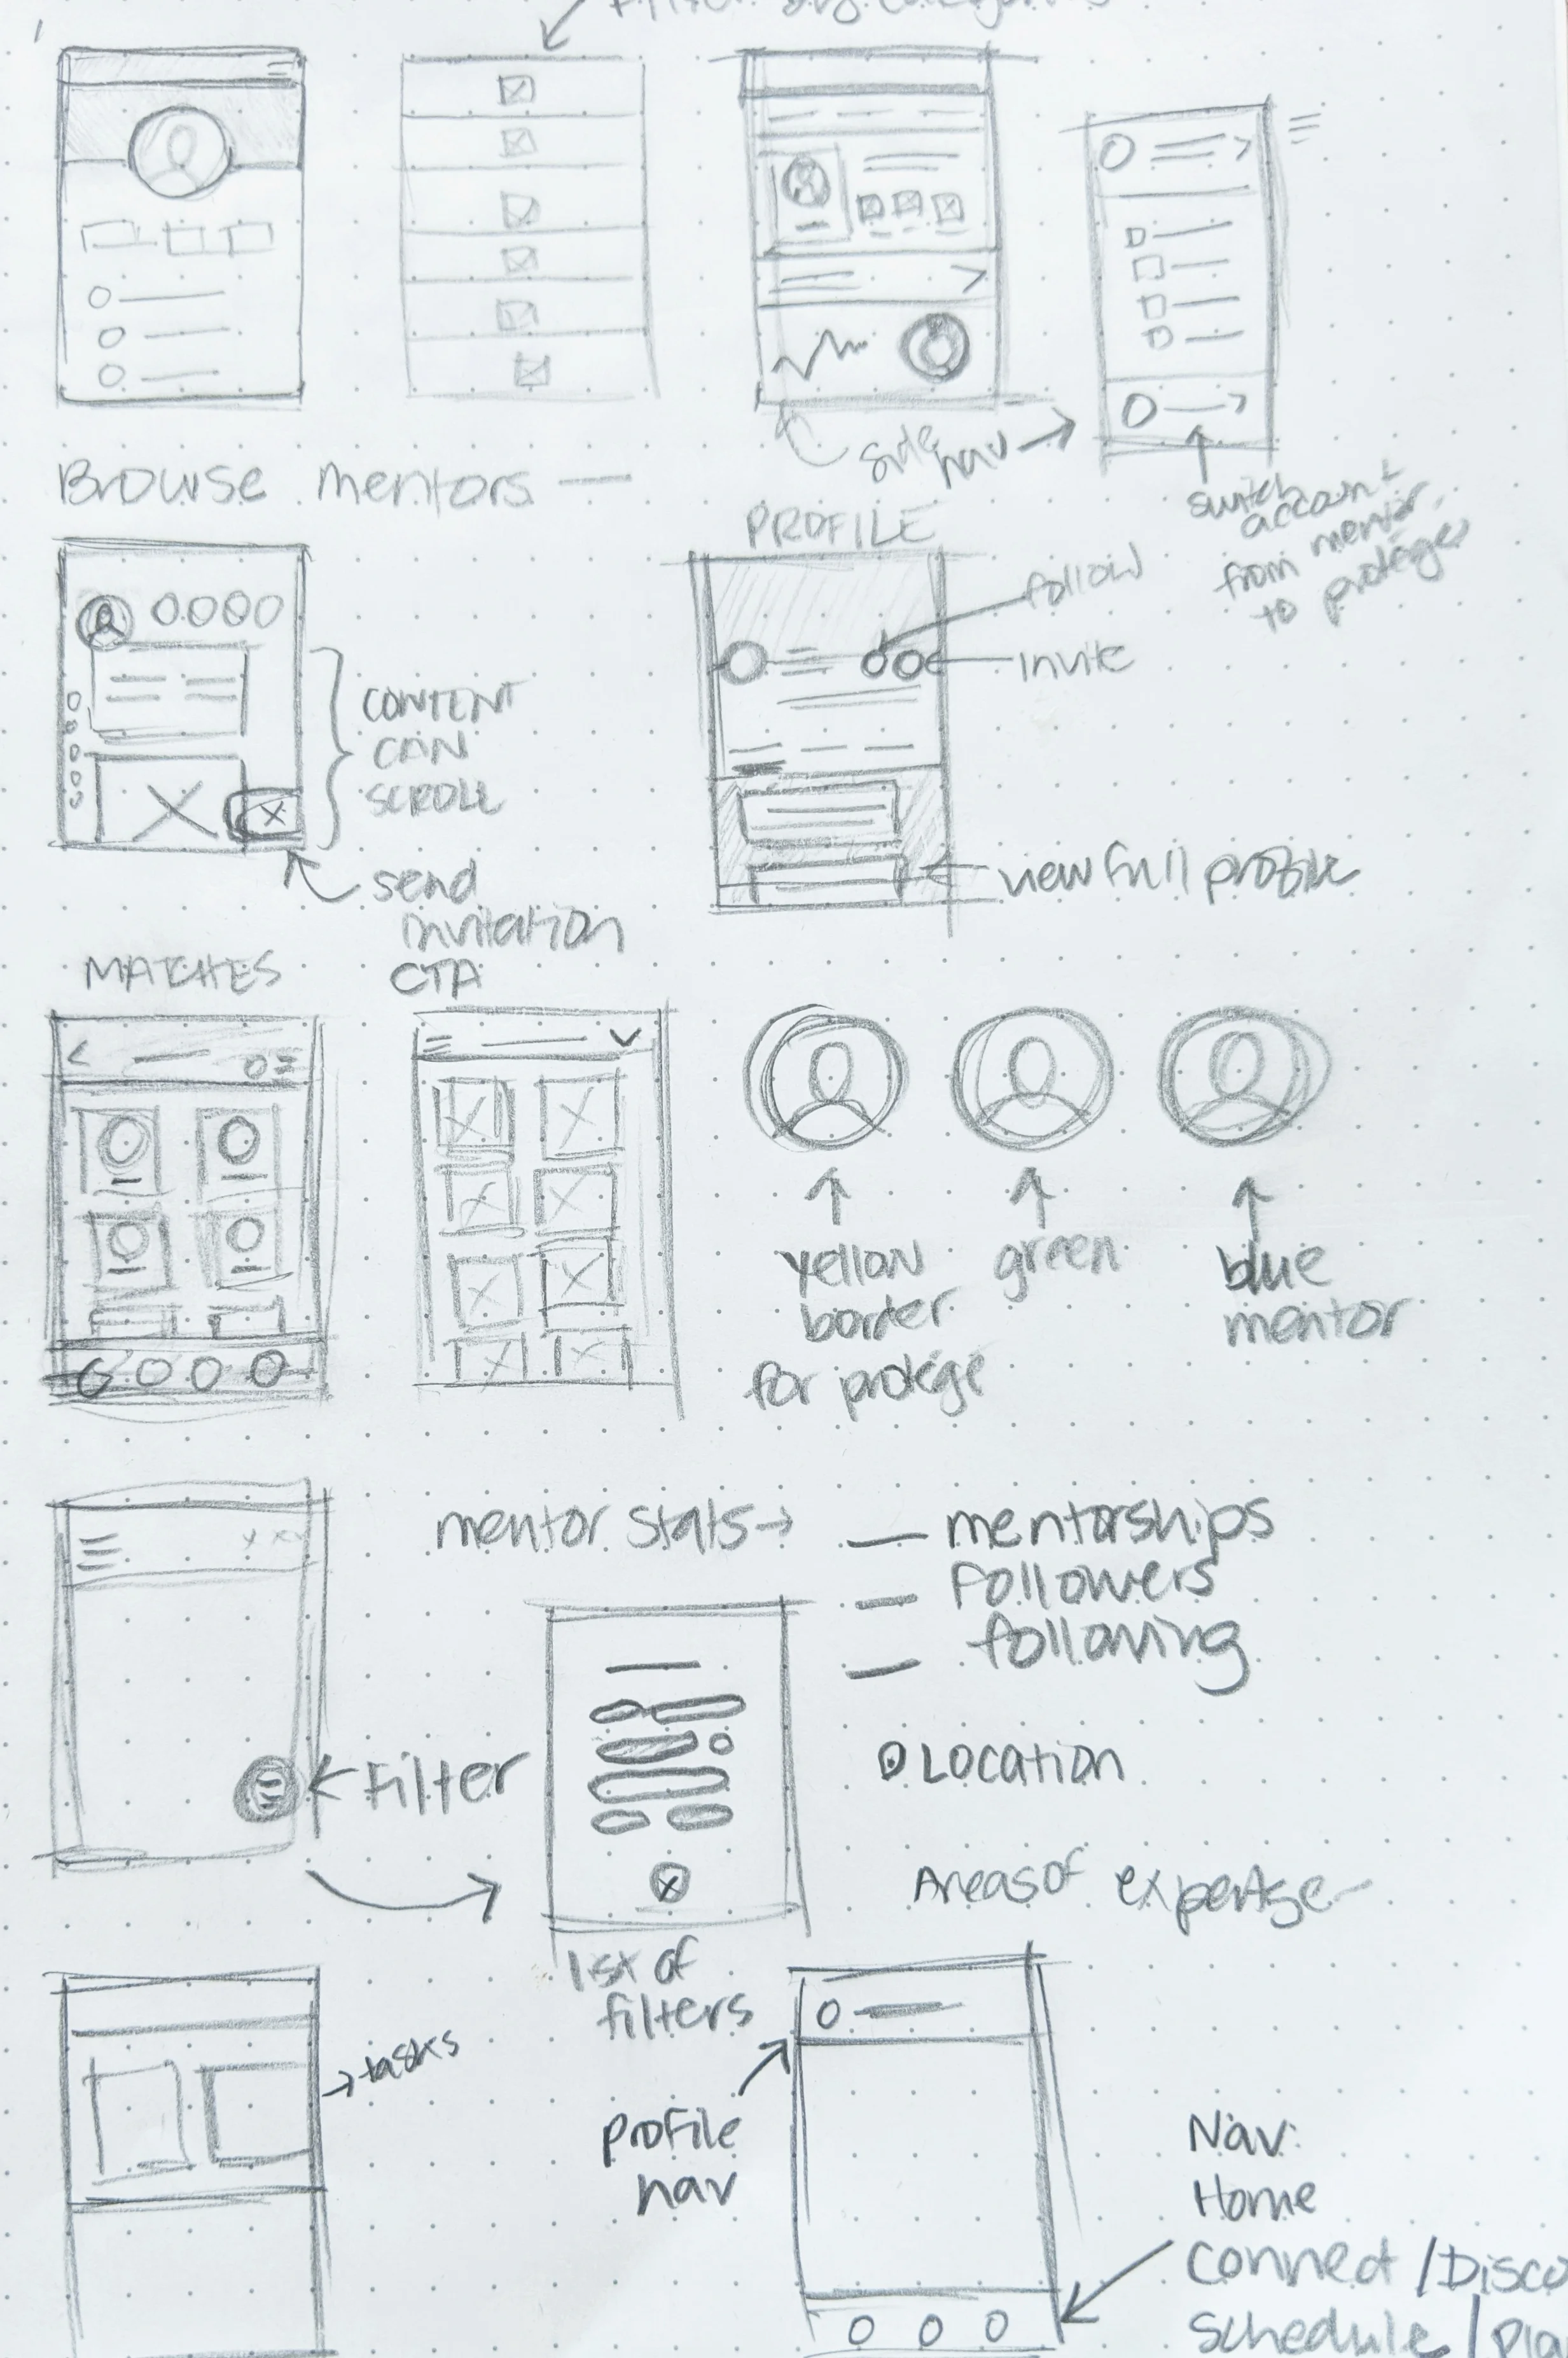 Side
nav
switch
account
from mentor
to protégé
Browse mentors
PROFILE
follow
invite
CONTENT
CAN
SCROLL
send
invitation
CTA
view full profile
MATCHES
yellow
border
for protégé
green
blue
mentor
mentor stats
mentorships
followers
following
Filter
Location
Areas of expertise
list of
filters
tasks
profile
nav
Nav:
Home
Connect / Disco
Schedule / Pla